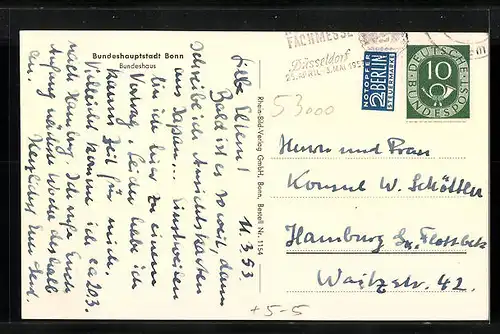 Bundeshauptstadt Bonn
Bundeshaus
11.3.53
Liebe Eltern!
Bald ist es so weit, dann
schreibe ich Ansichtskarten
aus Japan... Einstweilen
bin ich hier zu einem
Vortrag. Leider habe ich
kaum Zeit für mich.
Vielleicht komme ich ca 20.3.
nach Hamburg. Ich rufe Euch
Anfang nächster Woche deshalb
an.
Herzlichst Euer
Rhein-Bild-Verlag GmbH, Bonn, Bestell Nr. 1154
FACHMESSE
Düsseldorf
25. APRIL - 3. MAI 1953
NOTOPFER
2 BERLIN
STEUERMARKE
DEUTSCHE
BUNDESPOST
10
53000
Herrn und Frau
Konsul W. Schöttler
Hamburg Gr. Flottbek
Waitzstr. 42.
+5-5